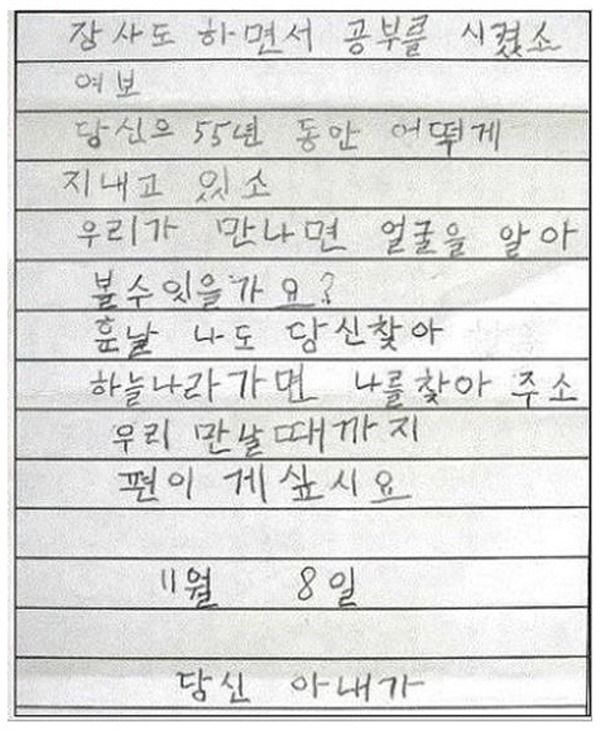 장사도 하면서 공부를 시켰소
여보
당신으 55년 동안 어떠게
지내고 있소
우리가 만나면 얼굴을 알아
볼수잇을가요?
훈날 나도 당신찾아
하늘나라가면 나를찾아 주소
우리 만날때까지
편이 게싶시요
11월 8일
당신 아내가